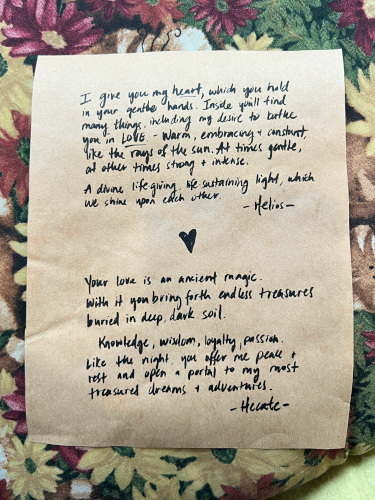 I give you my heart, which you hold
in your gentle hands. Inside you'll find
many things, including my desire to bathe
you in LOVE - warm, embracing + constant,
like the rays of the sun. At times gentle,
at other times strong + intense.
A divine life-giving, life-sustaining light, which
we shine upon each other.
- Helios -
Your love is an ancient magic.
With it you bring forth endless treasures
buried in deep, dark soil.
Knowledge, wisdom, loyalty, passion.
Like the night, you offer me peace +
rest and open a portal to my most
treasured dreams + adventures.
- Hecate -